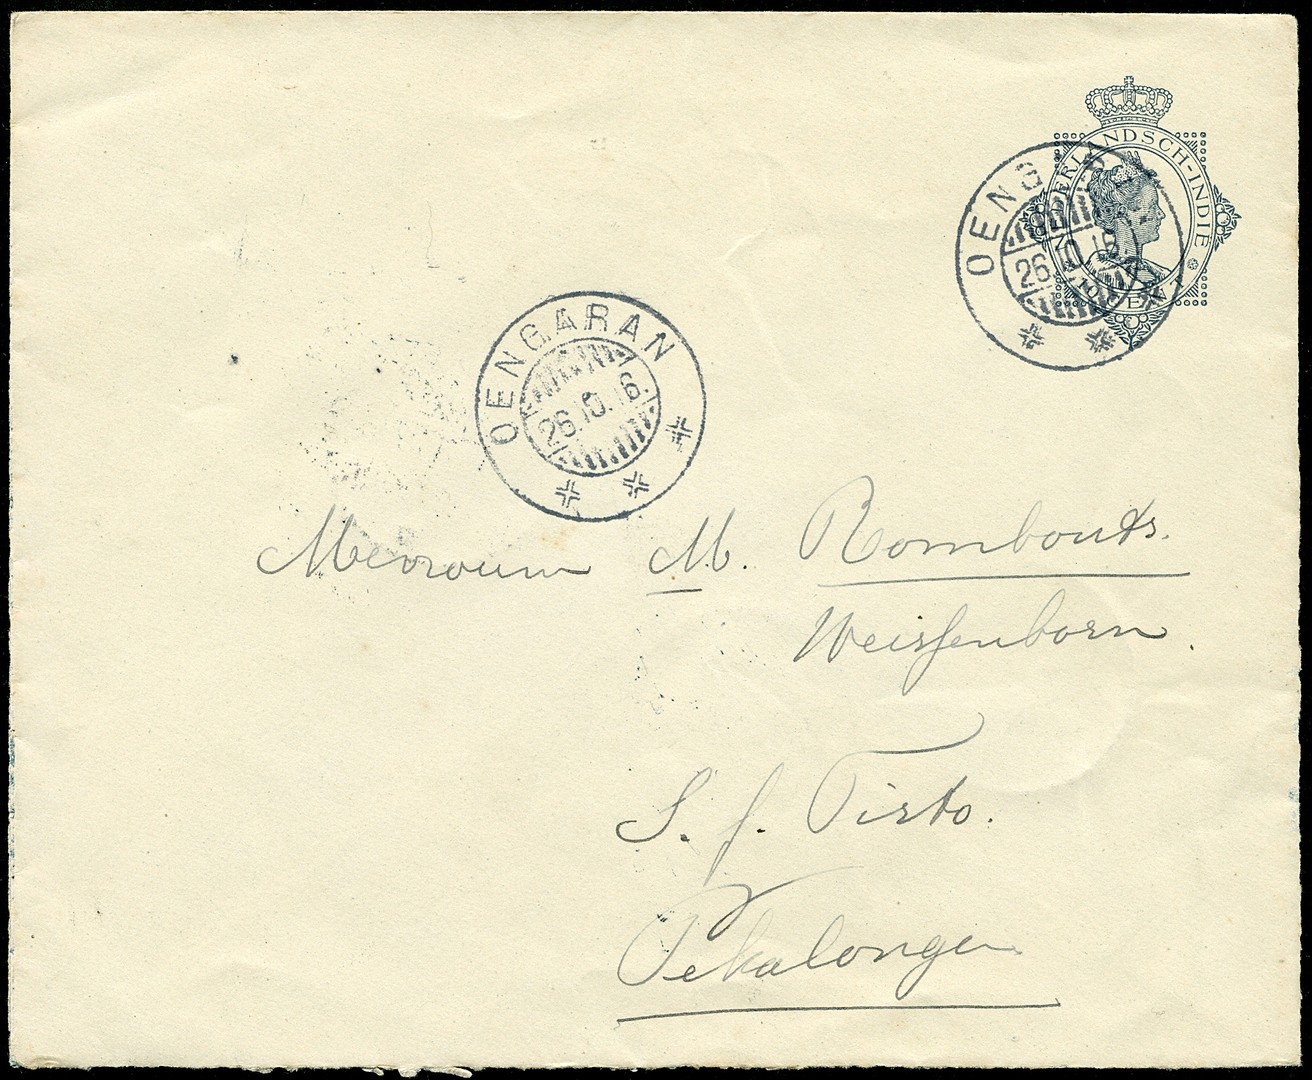 NEDERLANDSCH-INDIE
10 CENT
OENGARAN
26.10.16
OENGARAN
26.10.16.
Mevrouw M. Rombouts.
Weissenborn
S. f. Tirto.
Pekalongan